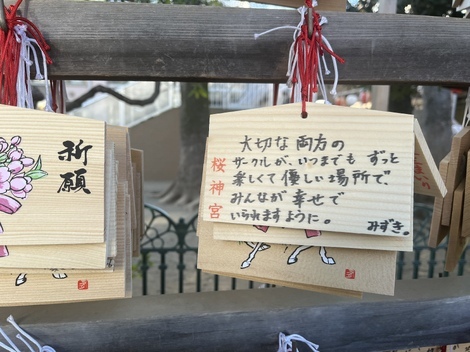 祈願
桜神宮
大切な 両方の
サークルが、いつまでも ずっと
楽しくて 優しい場所で、
みんなが 幸せで
いられますように。
みずき。